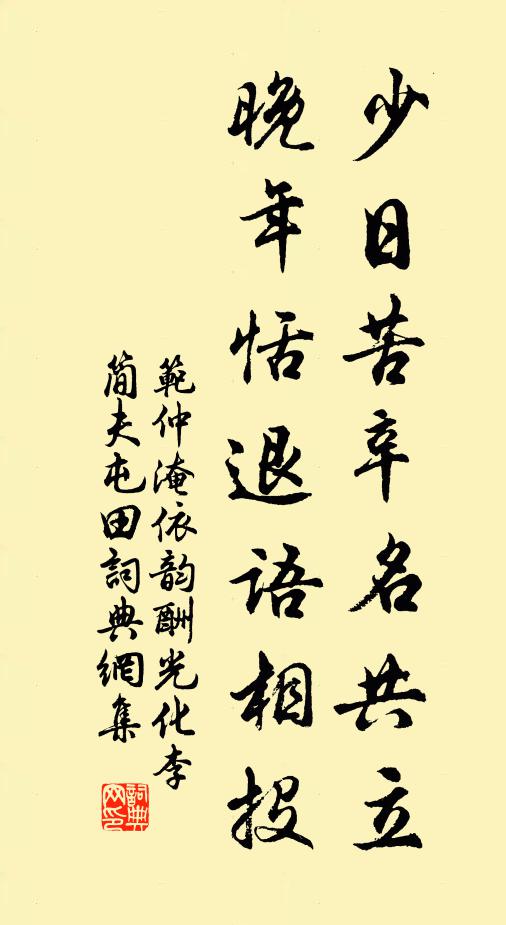 少日苦辛名共立
晚年恬退语相投
範仲淹依韵酬光化李
簡夫屯田詞典網集
詞典
网印